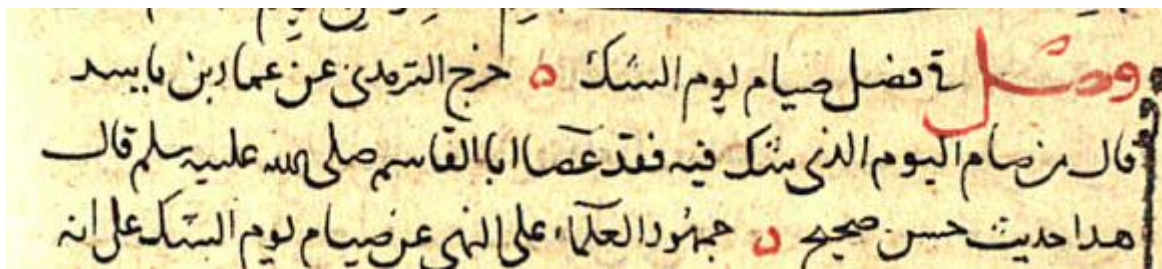 فصل في فضل صيام يوم الشك ه خرج الترمذي عن عمار بن ياسر
قال من صام اليوم الذي شك فيه فقد عصا ابا القاسم صلى الله عليه سلم قال
هذا حديث حسن صحيح ه جمهور العلماء على النهي عن صيام يوم الشك على انه